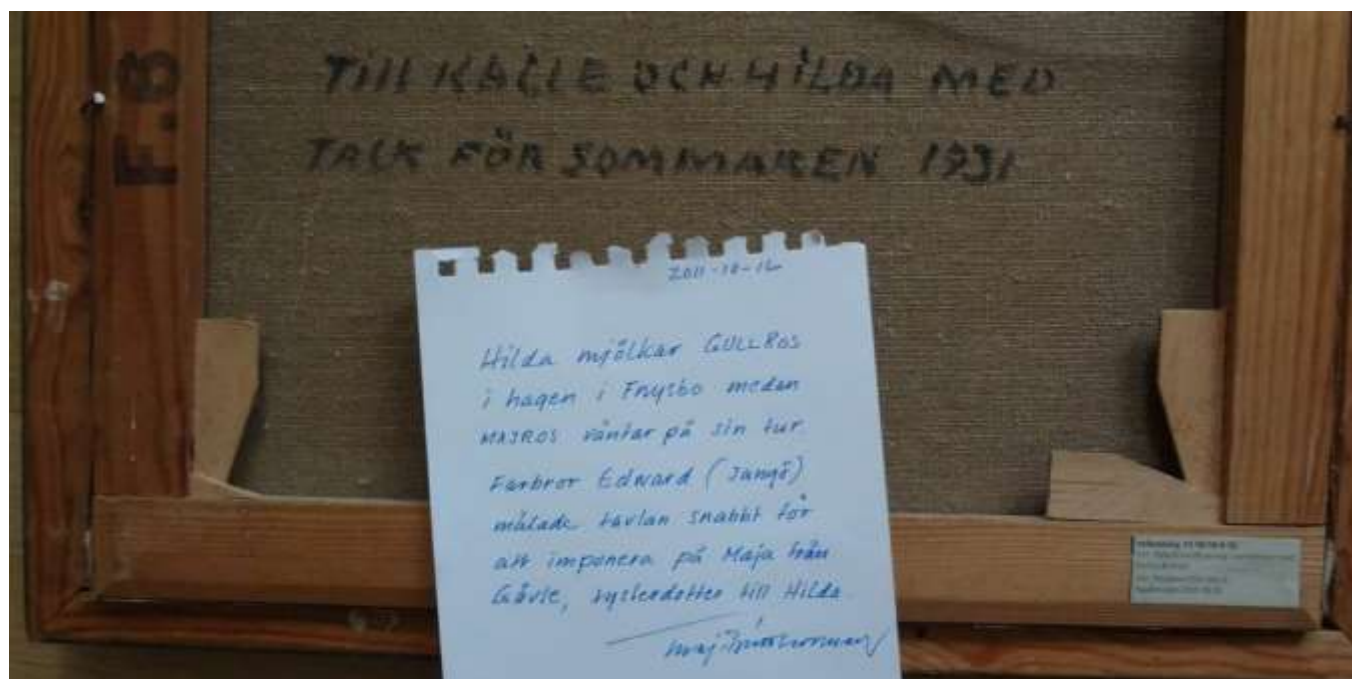 F.8
TILL KALLE OCH HILDA MED
TACK FÖR SOMMAREN 1931
2011-10-12
Hilda mjölkar GULLROS
i hagen i Fnysbo medan
MAJROS väntar på sin tur.
Farbror Edward (Jangö)
målade tavlan snabbt för
att imponera på Maja från
Gävle, systerdotter till Hilda.